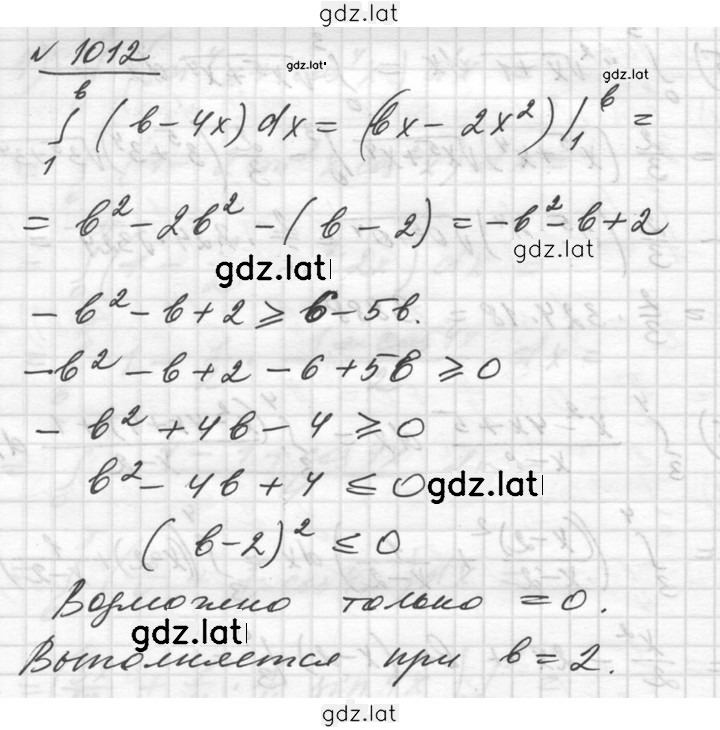 gdz.lat
№ 1012
gdz.lat
gdz.lat
∫₁ᵇ (b-4x)dx = (bx - 2x²)|₁ᵇ =
= b² - 2b² - (b - 2) = -b² - b + 2
gdz.lat
gdz.lat
- b² - b + 2 ⩾ 6 - 5b.
-b² - b + 2 - 6 + 5b ⩾ 0
- b² + 4b - 4 ⩾ 0
b² - 4b + 4 ≤ 0
gdz.lat
(b-2)² ≤ 0
Возможно только = 0.
gdz.lat
Выполняется при b = 2.
gdz.lat